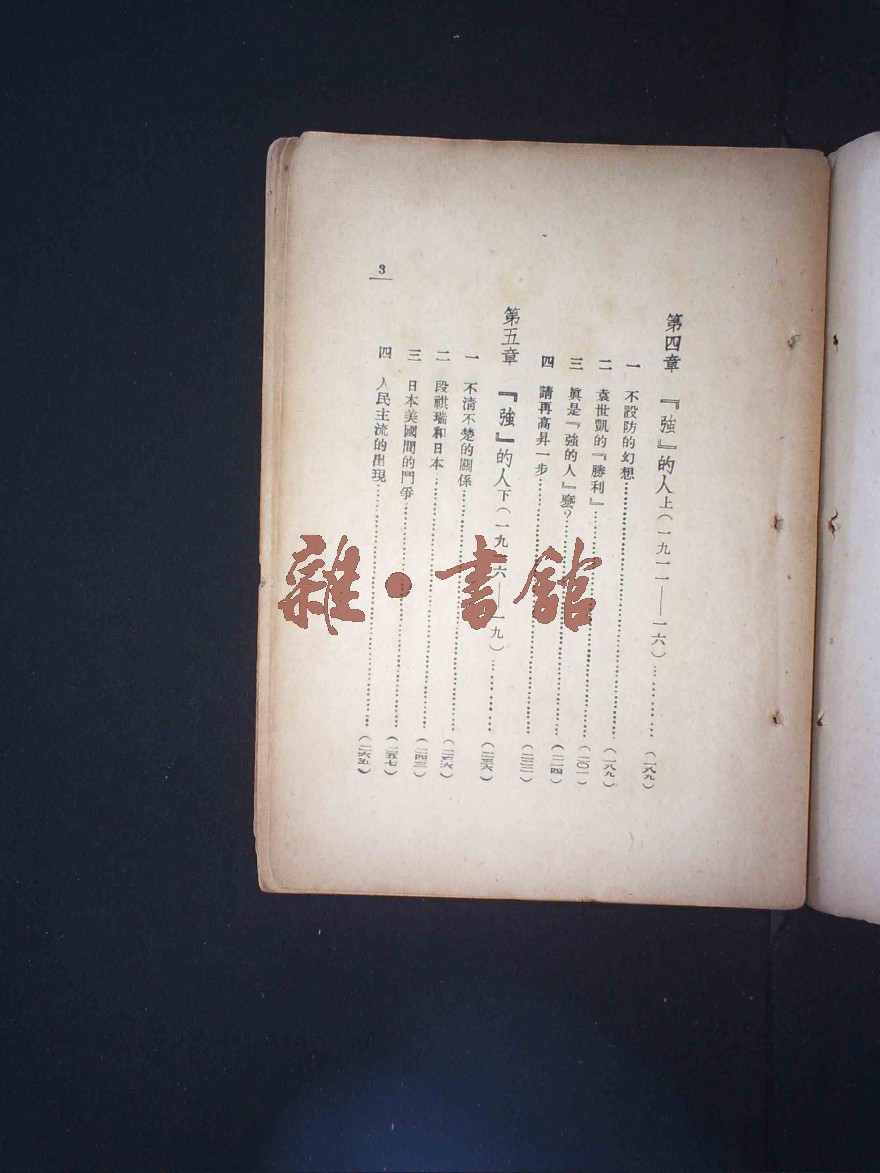 第四章 『強』的人上(一九一一——一六)…………(一八九)
一 不設防的幻想…………(一八九)
二 袁世凱的『勝利』…………(二〇一)
三 眞是『強的人』麼?…………(二一四)
四 請再高昇一步…………
第五章 『強』的人下(一九一六——一九)…………(二三六)
一 不清不楚的關係…………(二三六)
二 段祺瑞和日本…………(二四三)
三 日本美國間的鬥爭…………(二五七)
四 人民主流的出現…………(二六五)
3
雜·書館